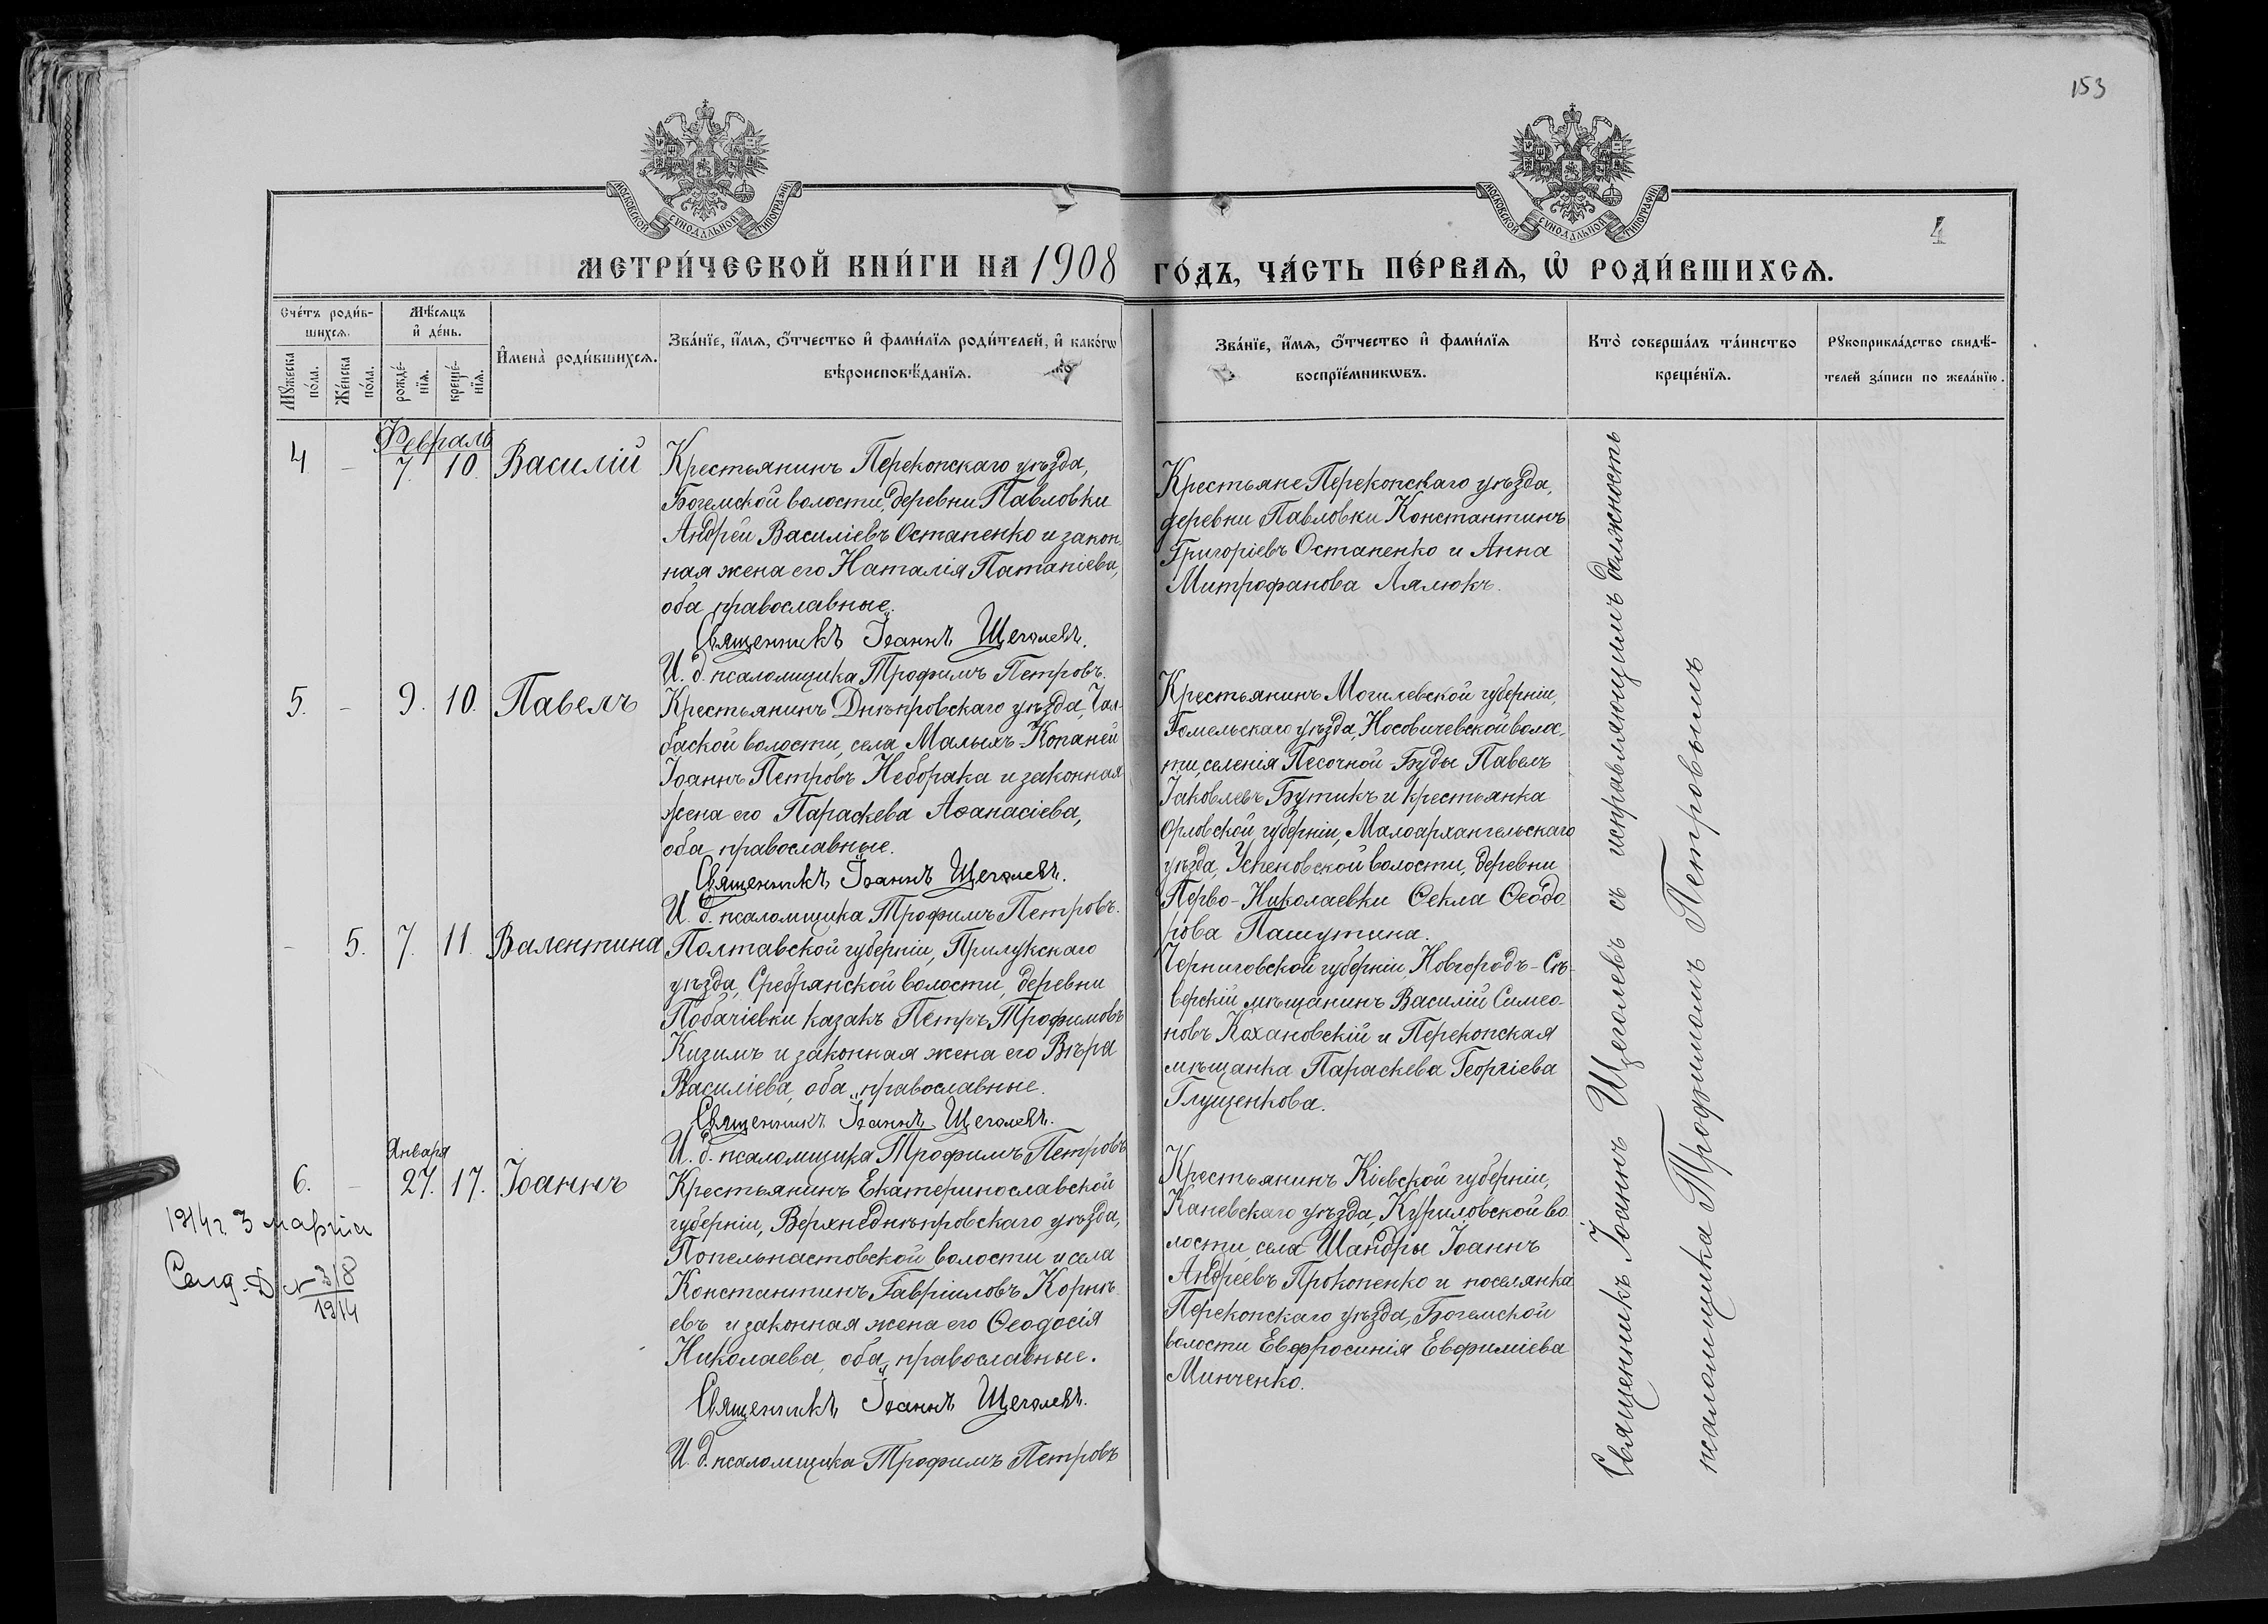 153
МОСКОВСКОЙ СѴНОДАЛЬНОЙ ТИПОГРАФІИ
МОСКОВСКОЙ СѴНОДАЛЬНОЙ ТИПОГРАФІИ
4
МЕТРИ́ЧЕСКОЙ КНИ́ГИ НА 1908 ГО́ДЪ, ЧА́СТЬ ПЕ́РВАЯ, Ѡ҆ РОДИ́ВШИХСѦ.
Сче́тъ роди́в-
шихсѧ.
Мꙋ́жеска
по́ла.
Же́нска
по́ла.
Мѣ́сѧцъ
и҆ де́нь.
рожде́-
нїѧ.
креще́-
нїѧ.
И҆мена̀ роди́вшихсѧ.
Зва́нїе, и҆́мѧ, ѻ҆́тчество и҆ фами́лїѧ роди́телей, и҆ како́гѡ
вѣроисповѣ́данїѧ.
Зва́нїе, и҆́мѧ, ѻ҆́тчество и҆ фами́лїѧ
воспрїе́мникѡвъ.
Кто̀ соверша́лъ та́инство
креще́нїѧ.
Рꙋкоприкла́дство свидѣ́-
телей за́писи по жела́нїю.
Февраль
4 – 7. 10. Василій
Крестьянинъ Перекопскаго уѣзда,
Богемской волости, деревни Павловки
Андрей Василіевъ Остапенко и закон-
ная жена его Наталія Патапіева,
оба православные.
Священникъ Іоаннъ Щеголевъ.
И. д. псаломщика Трофимъ Петровъ.
Крестьяне Перекопскаго уѣзда,
деревни Павловки Константинъ
Григоріевъ Остапенко и Анна
Митрофанова Лялюкъ.
5. – 9. 10. Павелъ
Крестьянинъ Днѣпровскаго уѣзда, Чал-
баской волости, села Малыхъ-Копаней
Іоаннъ Петровъ Неборака и законная
жена его Параскева Аѳанасіева,
оба православные.
Священникъ Іоаннъ Щеголевъ.
И. д. псаломщика Трофимъ Петровъ.
Крестьянинъ Могилевской губерніи,
Гомельскаго уѣзда, Носовичевской волос-
ти, селенія Песочной-Буды Павелъ
Іаковлевъ Бутикъ и крестьянка
Орловской губерніи, Малоархангельскаго
уѣзда, Успеновской волости, деревни
Перво-Николаевки Ѳекла Ѳеодо-
рова Пашутина.
– 5. 7. 11. Валентина
Полтавской губерніи, Прилукскаго
уѣзда, Сребрянской волости, деревни
Побачіевки казакъ Петръ Трофимовъ
Кизимъ и законная жена его Вѣра
Василіева, оба православные.
Священникъ Іоаннъ Щеголевъ.
И. д. псаломщика Трофимъ Петровъ
Черниговской губерніи, Новгородъ-Сѣ-
верскій мѣщанинъ Василій Симео-
новъ Кохановскій и Перекопская
мѣщанка Параскева Георгіева
Глущенкова.
Января
6. – 27. 17. Іоаннъ
1914 г. 3 марта
Д № 318
1914
Крестьянинъ Екатеринославской
губерніи, Верхнеднѣпровскаго уѣзда,
Попельнастовской волости и села
Константинъ Гавріиловъ Корнѣ-
евъ и законная жена его Ѳеодосія
Николаева, оба православные.
Священникъ Іоаннъ Щеголевъ.
И. д. псаломщика Трофимъ Петровъ
Крестьянинъ Кіевской губерніи,
Каневскаго уѣзда, Куриловской во-
лости, села Шандры Іоаннъ
Андреевъ Прокопенко и поселянка
Перекопскаго уѣзда, Богемской
волости Евфросинія Евфиміева
Минченко.
Священникъ Іоаннъ Щеголевъ съ исправляющимъ должность
псаломщика Трофимомъ Петровымъ